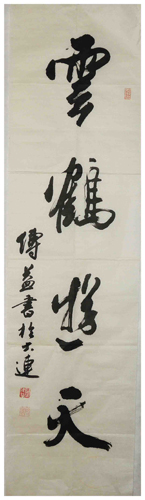 雲鶴游天
傅益書於大連